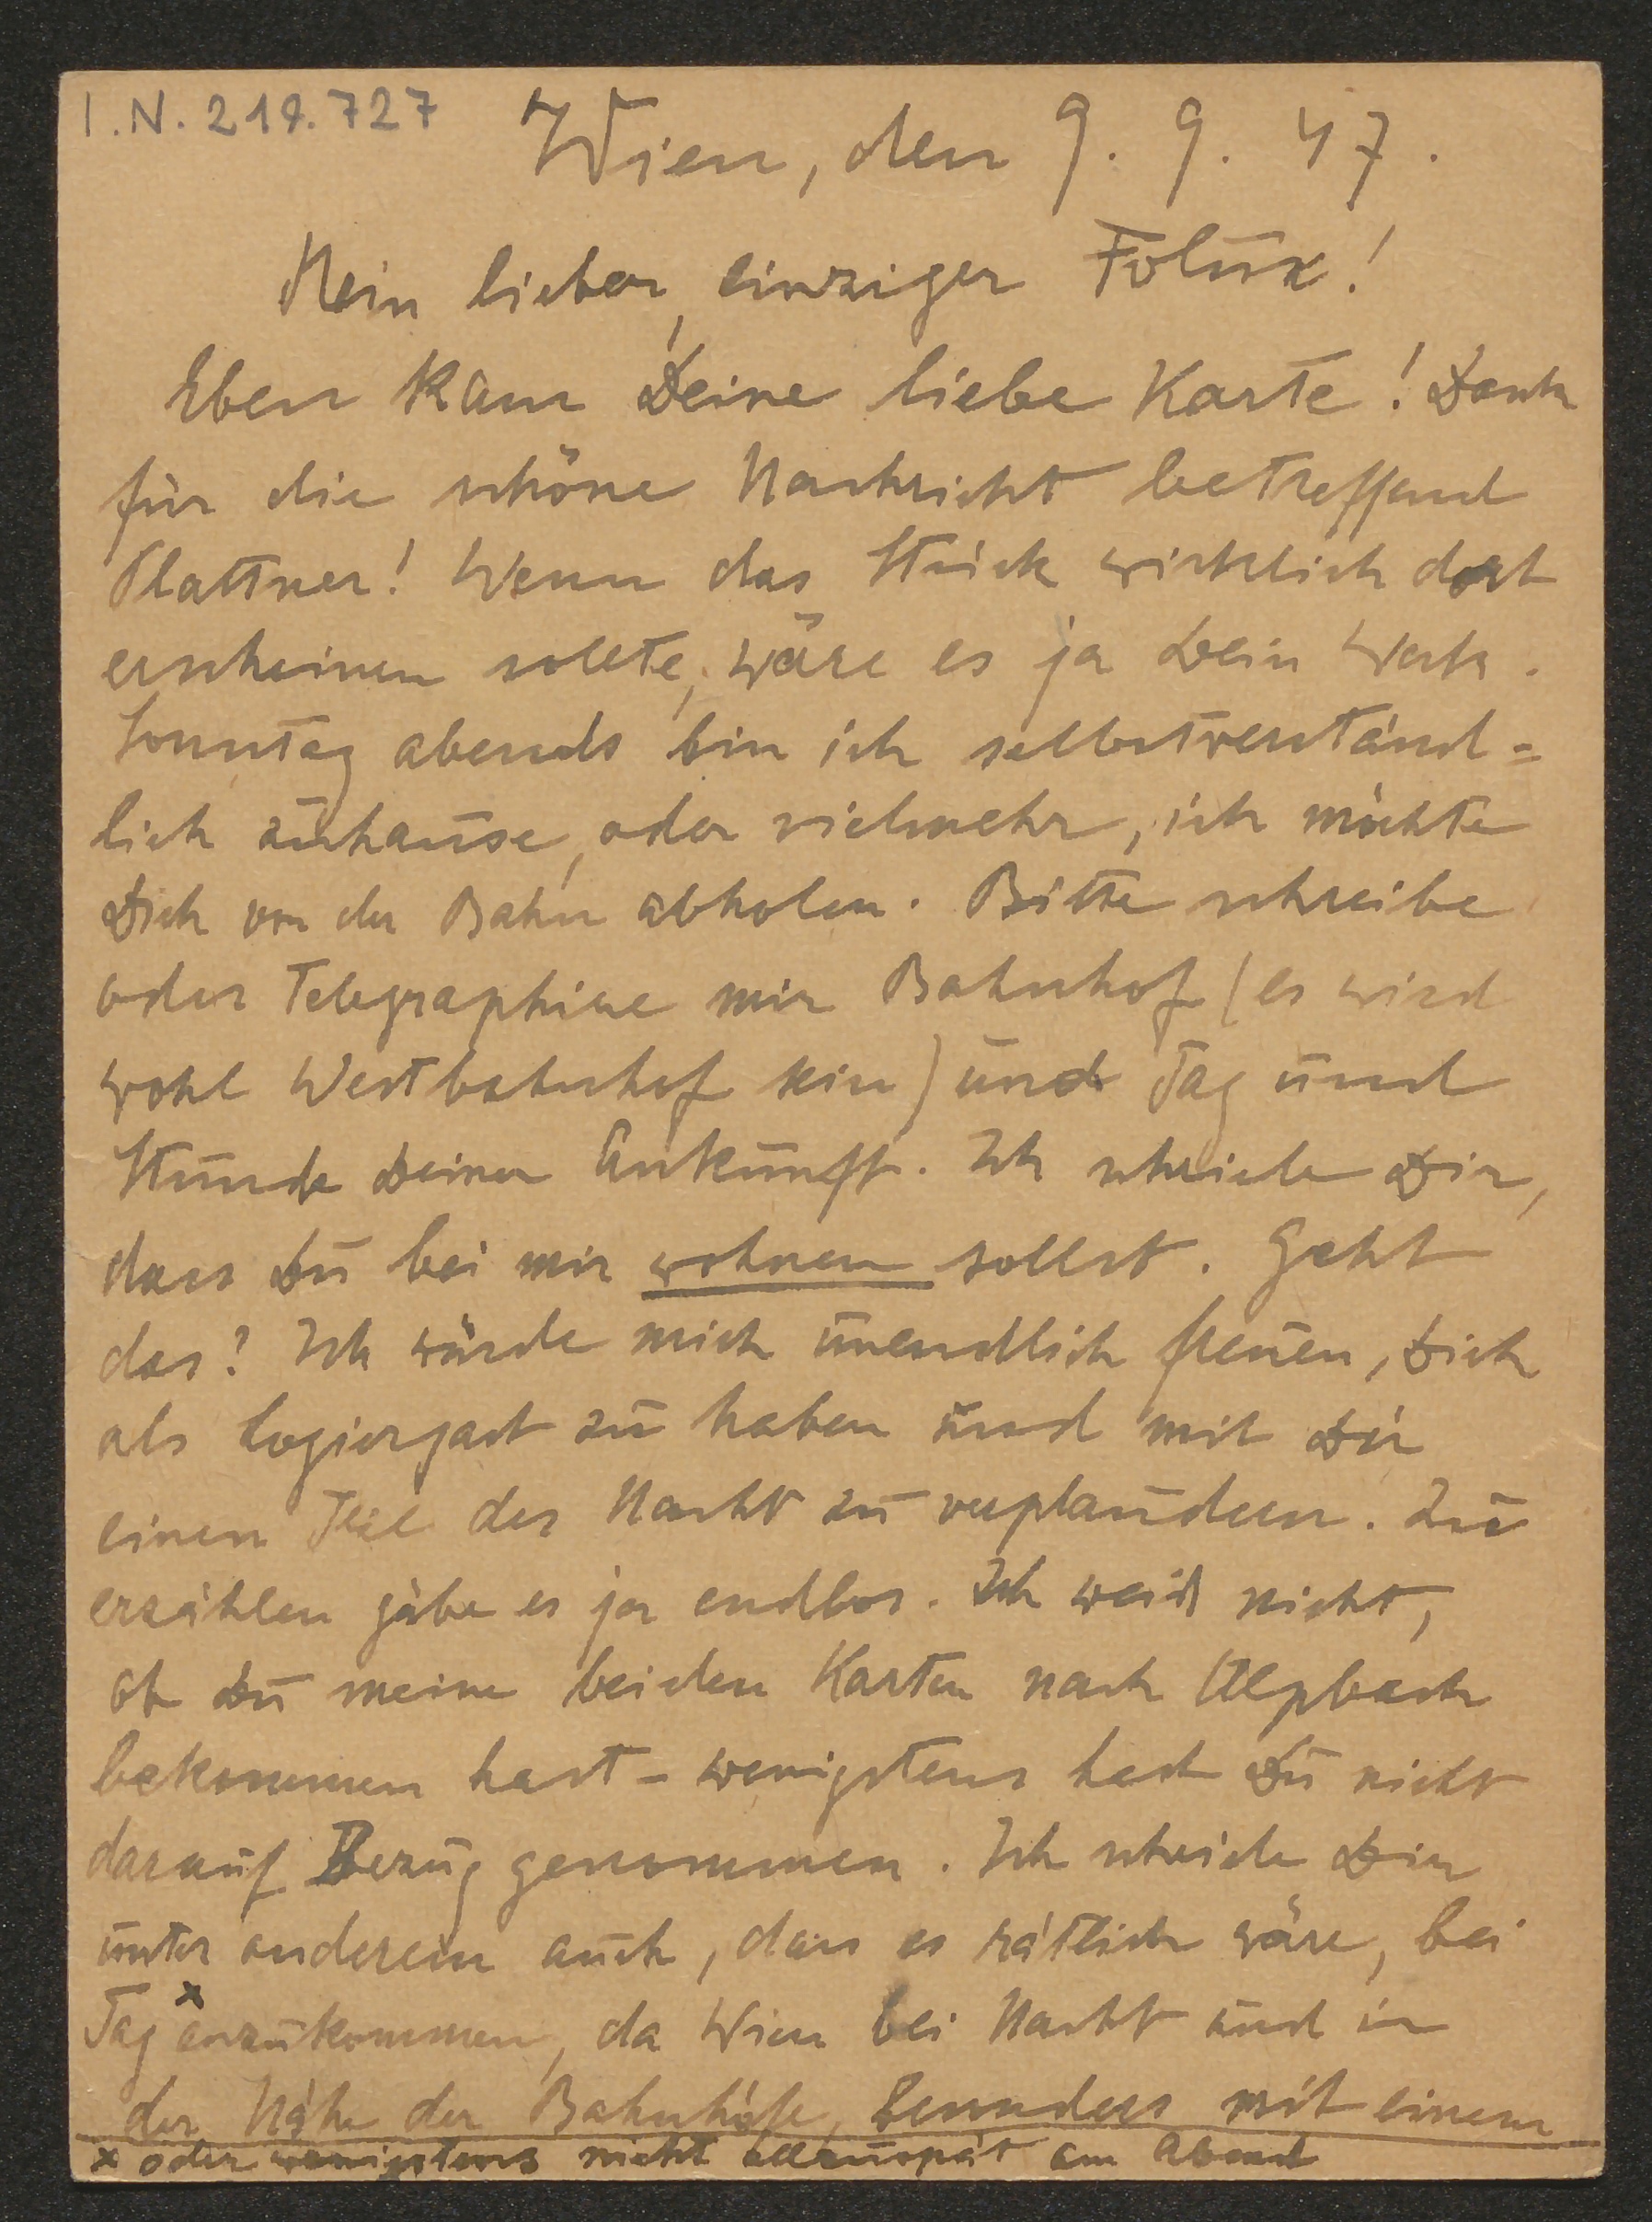 I.N. 218.727
Wien, den 9. 9. 47.
Mein lieber, einziger Folux!
Eben kam Deine liebe Karte! Dank
für die schöne Nachricht betreffend
Plattner! Wenn das Stück wirklich dort
erscheinen sollte, wäre es ja Dein Werk.
Sonntag abends bin ich selbstverständ=
lich zuhause, oder vielmehr, ich möchte
Dich von der Bahn abholen. Bitte schreibe
oder telegraphiere mir Bahnhof (es wird
wohl Westbahnhof sein) und Tag und
Stunde Deiner Ankunft. Ich schrieb Dir,
dass Du bei mir wohnen sollst. Geht
das? Ich würde mich unendlich freuen, Dich
als Logiergast zu haben und mit Dir
einen Teil der Nacht zu verplaudern. Zu
erzählen gäbe es ja endlos. Ich weiß nicht,
ob Du meine beiden Karten nach Alpbach
bekommen hast - wenigstens hast Du nicht
darauf Bezug genommen. Ich schrieb Dir
unter anderem auch, dass es rätlich wäre, bei
Tag x anzukommen, da Wien bei Nacht und in
der Nähe der Bahnhöfe, besonders mit einem
x oder wenigstens nicht allzuspät am Abend